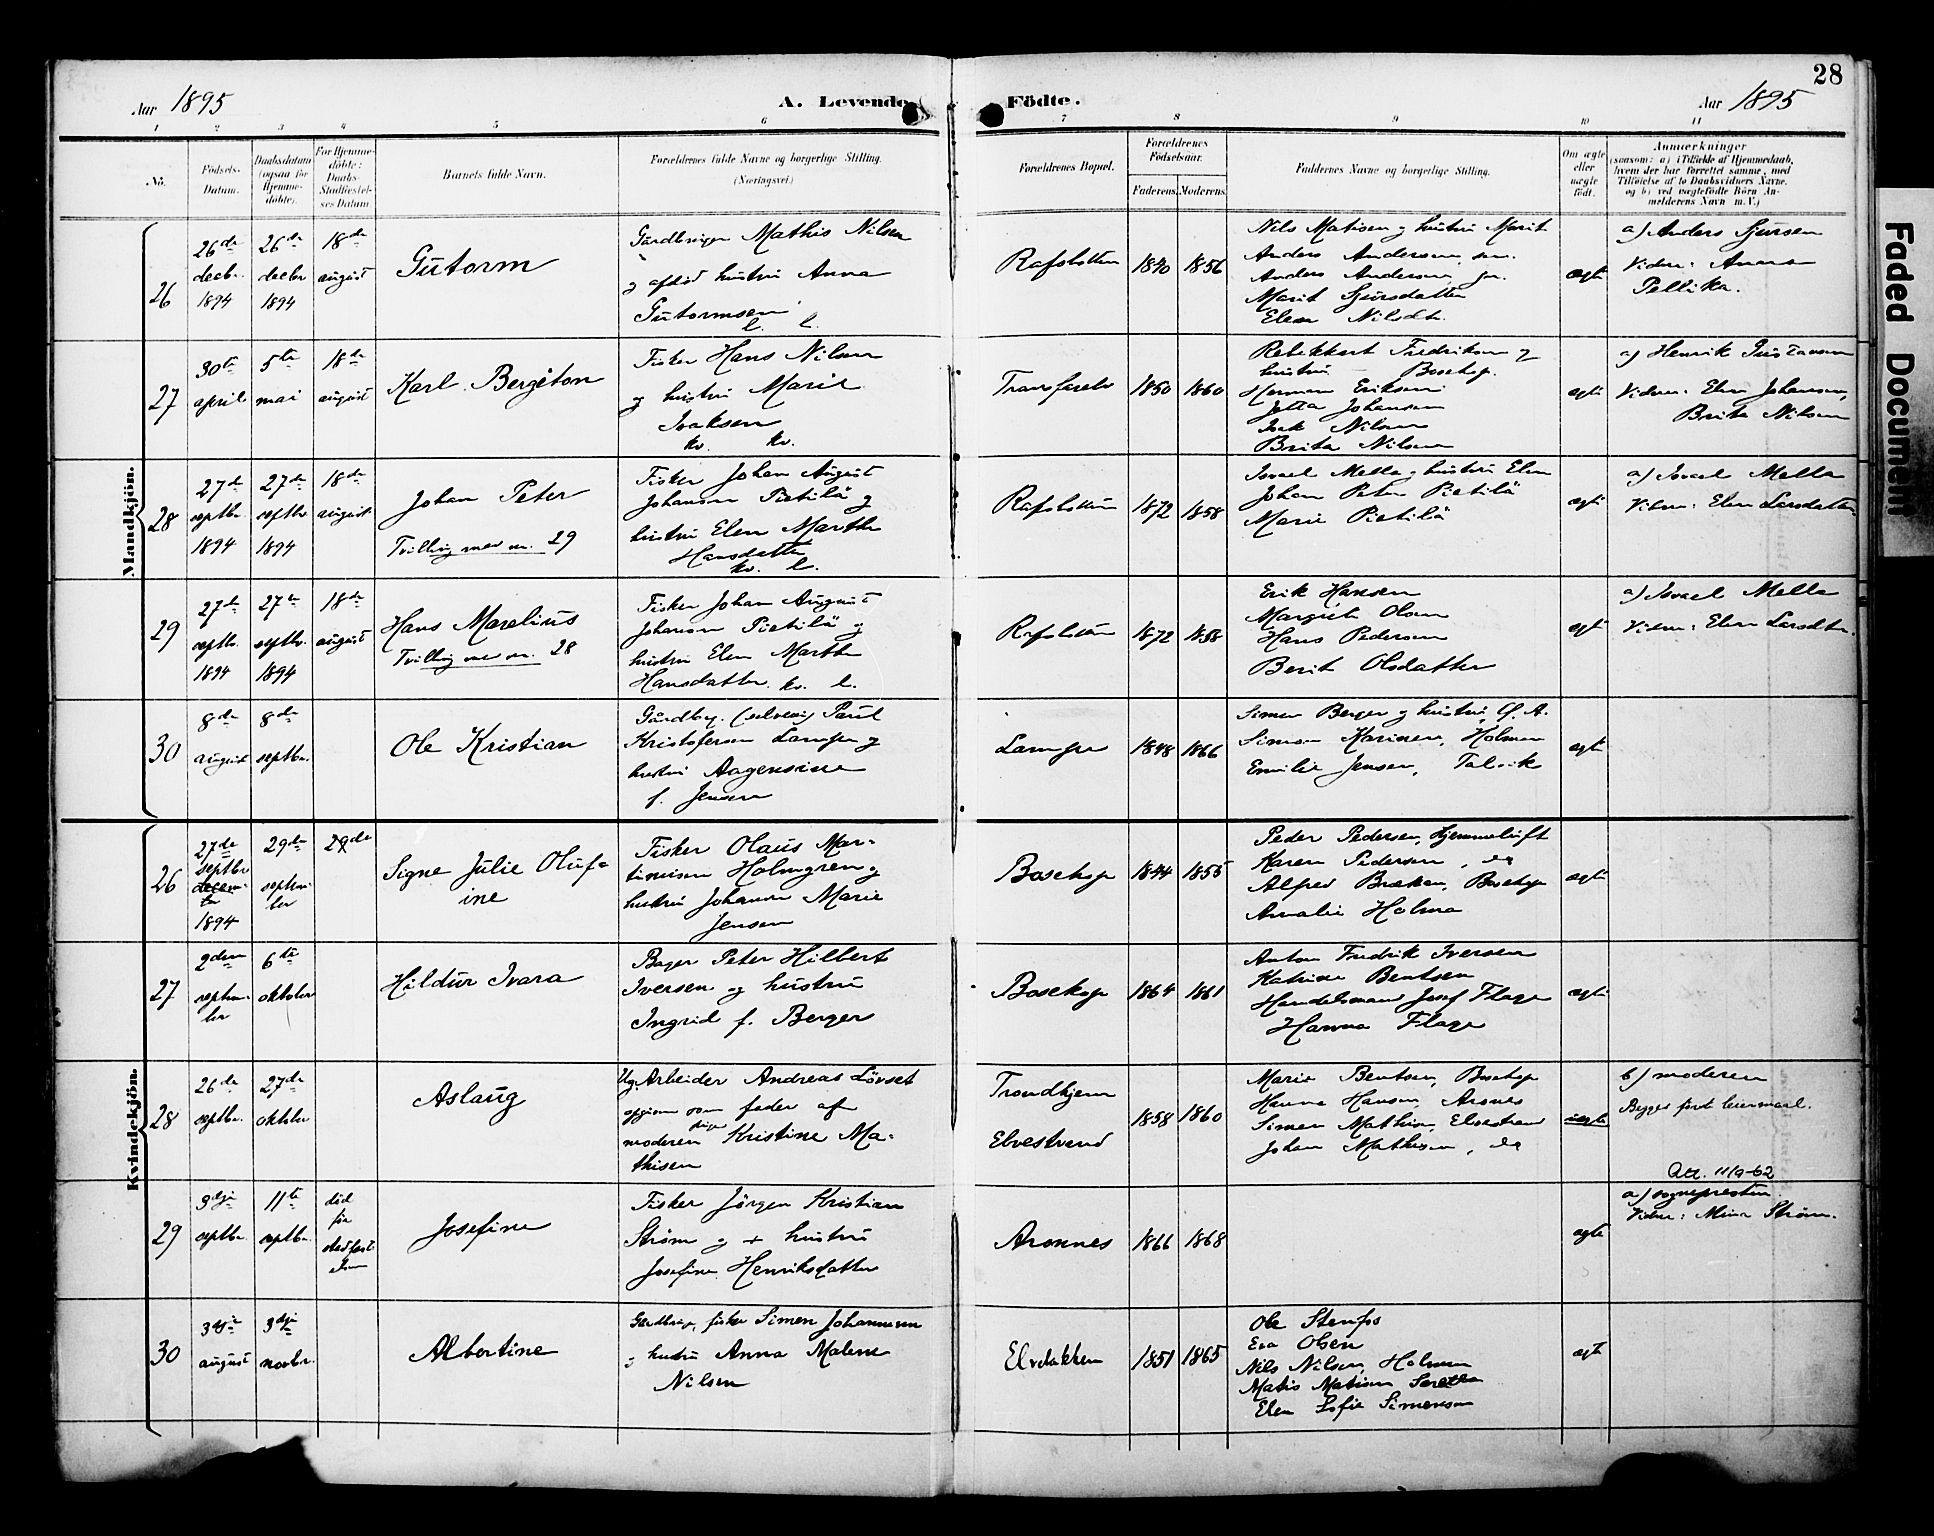 28
Aar 1895
A. Levende Födte.
Aar 1895
1 2 3 4 5 6 7 8 9 10 11
No.
Födsels-
Datum.
Daabsdatum
(ogsaa for
Hjemme-
döbte).
For Hjemme-
döbte:
Daabs-
Stadfæstel-
ses Datum
Barnets fulde Navn.
Forældrenes fulde Navne og borgerlige Stilling.
(Næringsvei.)
Forældrenes Bopæl.
Forældrenes
Födselsaar.
Faderens. Moderens.
Faddernes Navne og borgerlige Stilling.
Om ægte
eller
uægte
født.
Anmærkninger
(saasom: a) i Tilfælde af Hjemmedaab,
hvem der har forrettet samme, med
Tilföielse af to Daabsvidners Navne.
og b) ved uægtefödte Börn An-
melderens Navn m. V.)
Mandkjön.
26
26de
decbr.
1894
26de
decbr
1894
18de
august
Gutorm
Gårdbruger Mathis Nilsen
og afdød hustru Anna
Gutormsen
l. l.
Rafsbotten
1840 1856
Nils Matisen og hustru Marit
Anders Andersen, sen.
Anders Andersen, jun.
Marit Sjursdatter
Elen Nilsdtr.
ægte
a) Anders Sjursen
Vidner: Anna
Pellika.
27
30te
april
5te
mai
18de
august
Karl Bergiton
Fisker Hans Nilsen
og hustru Marie
Isaksen
kv. kv.
Tranfarelv
1850 1860
Rebekka Fredriksen og
hustru Bosekop.
Herman Eriksen
Jetta Johansen
Isak Nilsen
Brita Nilsen
ægte
a) Henrik Gustavsen
Vidner: Elen Johansen,
Brita Nilsen
28
27de
septbr.
1894
27de
septbr
1894
18de
august
Johan Peter
Tvilling med nr. 29
Fisker Johan August
Johansen Pietilä og
hustru Elen Marthe
Hansdatter
kv. l.
Rafsbotten
1872 1858
Israel Mella og hustru Elen
Johan Peter Pietilä
Marie Pietilä
ægte
a) Israel Mella
Vidner: Elen Larsdatter.
29
27de
septbr.
1894
27de
septbr.
1894
18de
august
Hans Marelius
Tvilling med nr. 28
Fisker Johan August
Johansen Pietilä og
hustru Elen Marthe
Hansdatter. kv. l.
Rafsbotten
1872 1858
Erik Hansen
Margreth Olsen
Hans Pedersen
Berit Olsdatter
ægte
a) Israel Mella
Vidner: Elen Larsdtr.
30
8de
august
8de
septbr.
Ole Kristian
Gårdbr. (selveier) Paul
Kristofersen Lampe og
hustru Aagensine
f. Jensen
Lampe
1848 1866
Simen Berger og hustru,
Simon Karinen, Holmen
Emilie Jensen, Talvik
ægte
Kvindekjön.
26
27de
septbr
decem-
ber
1894
29de
septem-
ber
29de
Signe Julie Oluf-
ine
Fisker Olaus Mar-
tinusen Holmgren og
hustru Johanna Marie
Jensen
Bosekop
1844 1855
Peder Pedersen, Hjemmeluft
Karen Pedersen, do
Alfred Brækken, Bosekop
Amalie Holma
ægte
27
2den
septem-
ber
6te
oktober
Hildur Ivara
Bager Peter Hilbert
Iversen og hustru
Ingrid f. Berger
Bosekop
1864 1861
Anton Fredrik Iversen
Katrine Bentsen
Handelsmand Josef Flage
Hanna Flage
ægte
28
26de
septbr.
27de
oktober
Aslaug
Ug. Arbeider Andreas Løvset
opgiven som fader af
moderen pige Kristine Ma-
thisen
Trondhjem
Elvestrand
1858 1860
Marie Bentsen, Bosekop
Hanna Hansen, Aronnes
Simen Mathisen, Elvestrand
Johan Mathisen, do
uægte
b) moderen
Begges først leiermaal.
Att. 11/9-62
29
3dje
septbr.
11te
septbr.
død
før
stadfæst-
elsen
Josefine
Fisker Jørgen Kristian
Strøm og + hustru
Josefine Henriksdatter
Aronnes
1866 1868
ægte
a) sognepresten
Vidner: Mina Strøm.
30
3dje
august
3dje
novbr.
Albertine
Gårdbrug. fisker Simen Johannesen
og hustru Anna Malene
Nilsen
Elvebakken
1851 1865
Ole Stenfos
Eva Olsen
Nils Nilsen, Holmen
Matis Matisen
Elen Sofie Simensen
ægte
Faded Document